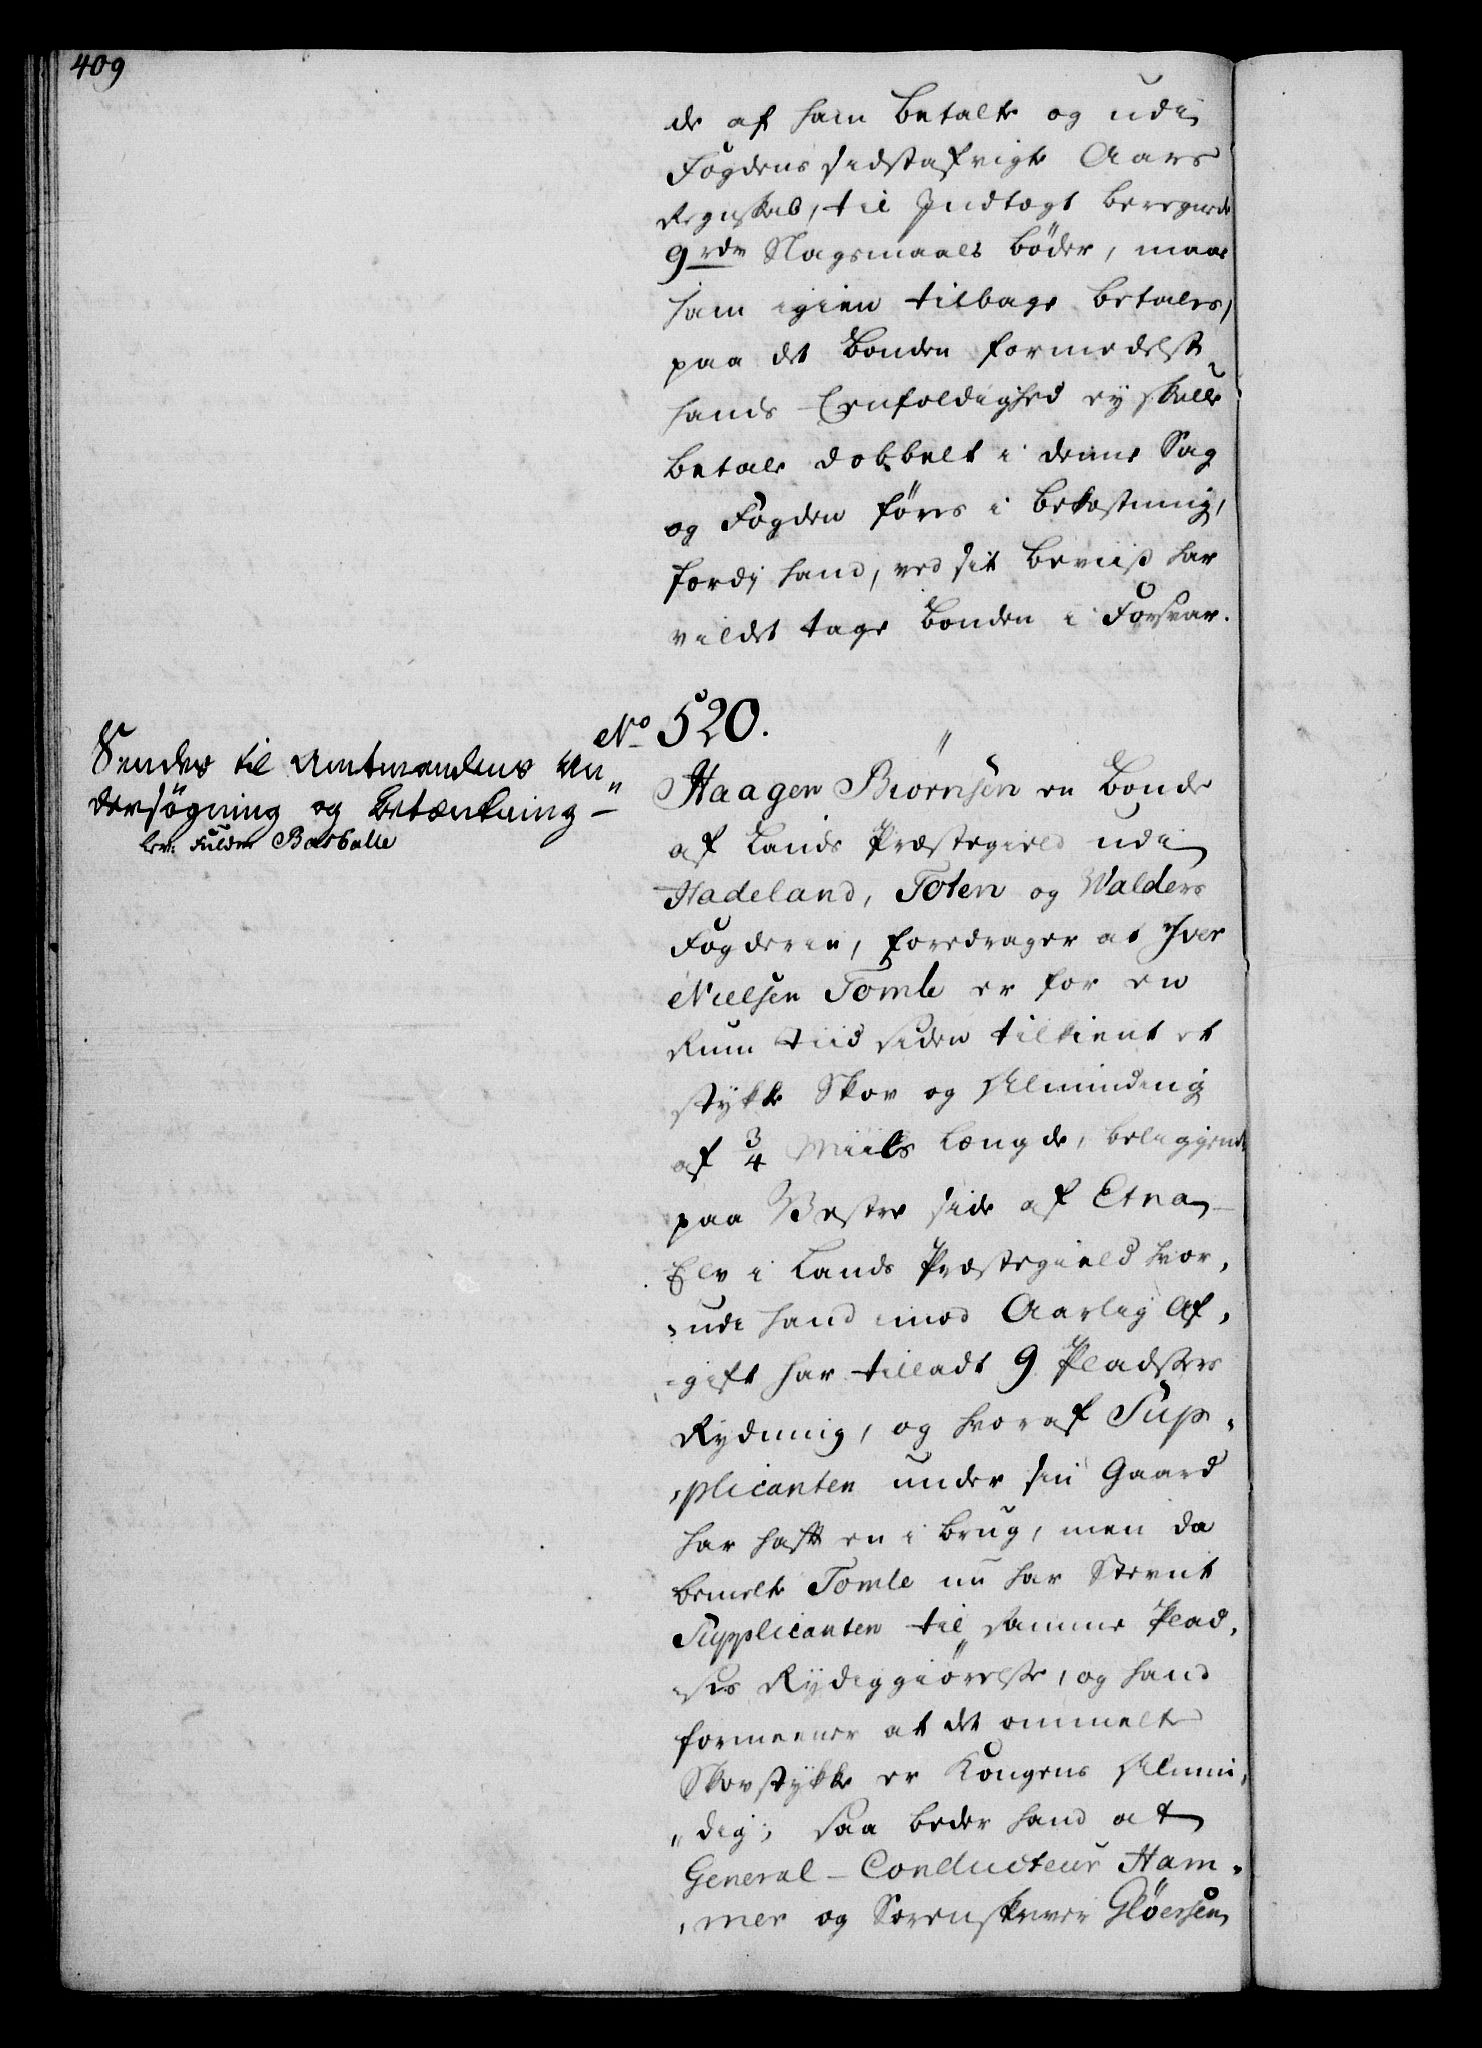 409
de af ham betalte og udi
Fogdens sidstafvigte Aars
Regnskab, til Indtægt beregnede
9 rdr Slagsmaals bøder, maae
ham igien tilbage betales,
paa det bonden formedelst
hands Eenfoldighed ey skulle
betale dobbelt i denne Sag
og Fogden føres i bekostning,
fordi hand, ved sit beviis har
vildet tage bonden i Forsvar.
No 520.
Sendes til Amtmandens Un„
dersøgning og betænkning
Haagen Biørnsen en bonde
af Lands Præstegield udi
Hadeland, Toten og Walders
Fogderie, foredrager at Iver
Nielsen Tomle er for en
Rum tiid siden tilkient et
stykke Skov og Alminding
af 3/4 Miils Længde, beliggende
paa Vestre side af Etna
Elv i Lands Præstegield hvor„
„udi hand imod Aarlig Af„
„gift har tilladt 9 Pladsers
Rydning, og hvoraf Sup„
„plicanten under sin Gaard
har haft en i brug, men da
bemelte Tomle nu har Stevnt
Supplicanten til samme Plad„
„ses Rydiggiørelse, og hand
formeener at det ommelte
Skovstykke er Kongens Almin„
„dig, saa beder hand at
General-Conducteur Ham„
„mer og Sorenskriver Gløersen